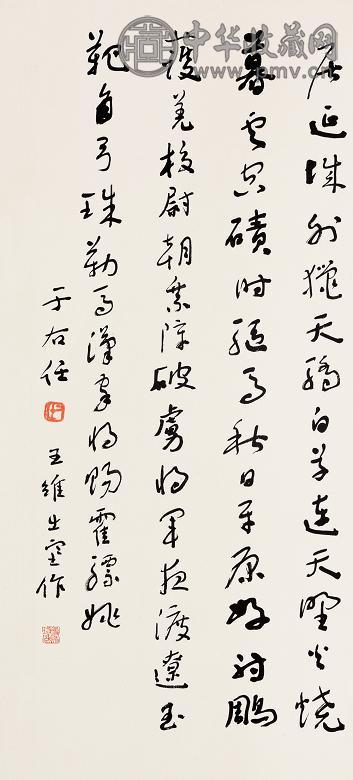 中华收藏网
居延城外獵天驕白草連天野火燒
暮雲空磧時驅馬秋日平原好射鵰
護羌校尉朝乘障破虜將軍夜渡遼玉
靶角弓珠勒馬漢家將賜霍驃姚
于右任 王維出塞作